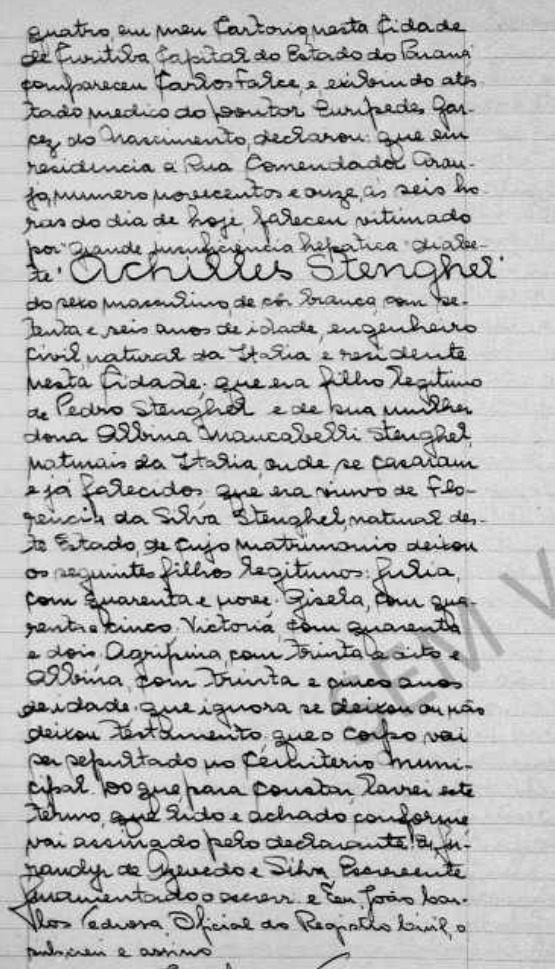 quatro, em meu Cartorio, nesta Cidade
de Curitiba Capital do Estado do Paraná
compareceu Carlos Falce, e, exibindo ates-
tado medico do Doutor Euripedes Gar-
cez do Nascimento, declarou: que em
residencia a Rua Comendador Arau-
jo, numero novecentos e onze, ás seis ho-
ras do dia de hoje, faleceu vitimado
por "grande insuficiencia hepatica - diabe-
te" Achilles Stenghel
do sexo masculino, de côr branca, com se-
tenta e seis anos de idade, engenheiro
Civil, natural da Italia e residente
nesta Cidade; que era filho legitimo
de Pedro Stenghel e de sua mulher
dona Albina Maucabelli Stenghel,
naturais da Italia, onde se casaram
e já falecidos, que era viuvo de Flo-
rencia da Silva Stenghel, natural des-
te Estado, de cujo matrimonio deixou
os seguintes filhos legitimos: Julia,
com quarenta e nove. Gisela, com qua-
renta e cinco. Victoria com quarenta
e dois. Agripina, com trinta e oito e
Albina, com trinta e cinco anos
de idade. que ignora se deixou ou não
deixou testamento. que o corpo vai
ser sepultado no Cemiterio Muni-
cipal. Do que para constar lavrei este
termo, que lido e achado conforme
vai assinado pelo declarante. Eu, Ju-
randyr de Azevedo e Silva, Escrevente
Juramentado o escrevi. e Eu, João Car-
los Pedrosa, Oficial do Registro Civil, o
subscrevi e assino
SEM V